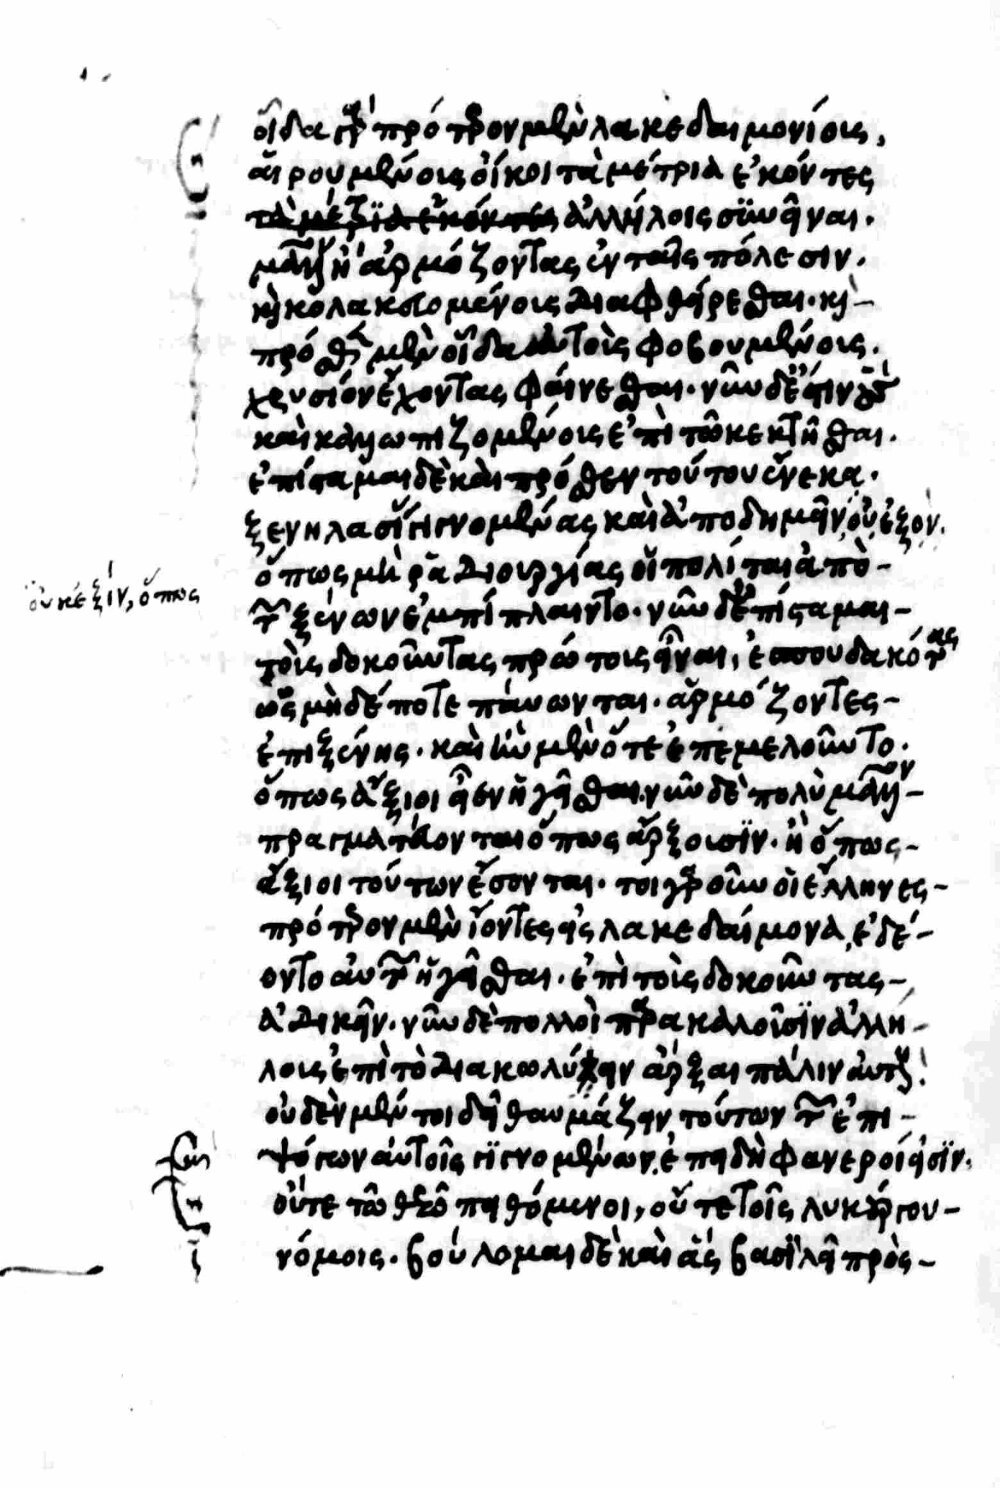 οἶδα γὰρ πρότερον μὲν λακεδαιμονίοις,
αἱρουμένοις οἴκοι τὰ μέτρια ἐκόντες
τὰ μέτρια ἐκόντες ἀλλήλοις σϊωῆναι.
μᾶλλον ἢ ἁρμόζοντας ἐν ταῖς πόλεσιν.
κ κολακευομένοις διαφθείρεσθαι. κ
πρόσθεν μὲν οἶδα αὐτοὺς φοβουμένοις.
χρυσίον ἔχοντας φαίνεσθαι. νῦν δ' ἔστιν οὓς
καὶ καλλωπιζομένοις ἐπὶ τῶ κεκτῆσθαι.
ἐπίσταμαι δὲ καὶ πρόσθεν τούτου ἕνεκα.
ξενηλασίας γινομένας καὶ ἀποδημεῖν οὐκ ἐξὸν.
οὐκ ἐξῖν, ὅπως
ὅπως μὴ ραδιουργίας οἱ πολίται ἀπὸ
τῶν ξένων ἐμπίπλαιντο. νῦν δ' ἐπίσταμαι
τοὺς δοκοῦντας πρώτοις εἶναι, ἐσπουδακότας
ὡς μηδέποτε παύωνται. ἁρμόζοντες
ἐπὶ ξένης. καὶ ἦν μὲν ὅτε ἐπεμελοῦντο.
ὅπως ἄξιοι εἶεν ἡγεῖσθαι. νῦν δὲ πολὺ μᾶλλον
πραγματεύονται ὅπως ἄρξοισϊν. ἢ ὅπως
ἄξιοι τούτων ἔσονται. τοιγαροῦν οἱ ἕλληνες
πρότερον μὲν ἰόντες εἰς λακεδαίμονα, ἐδέ
οντο αὐτῶν ἡγεῖσθαι. ἐπὶ τοὺς δοκοῦντας
ἀδικεῖν. νῦν δὲ πολλοὶ παρακαλοῦσϊν ἀλλή
λοις ἐπὶ τὸ διακωλύειν ἄρξαι πάλιν αὐτούς.
οὐδὲν μέντοι δεῖ θαυμάζειν τούτων τῶν ἐπι
ψόγων αὐτοῖς γϊγνομένων, ἐπειδὴ φανεροί εἰσϊν.
οὔτε τῶ θεῶ πειθόμενοι, οὔτε τοῖς λυκούργου
νόμοις. βούλομαι δὲ καὶ ὡς βασϊλεῖ πρὸς